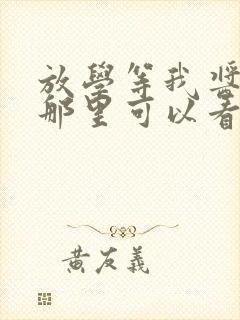 放學等我將
那里可以看
黄友義